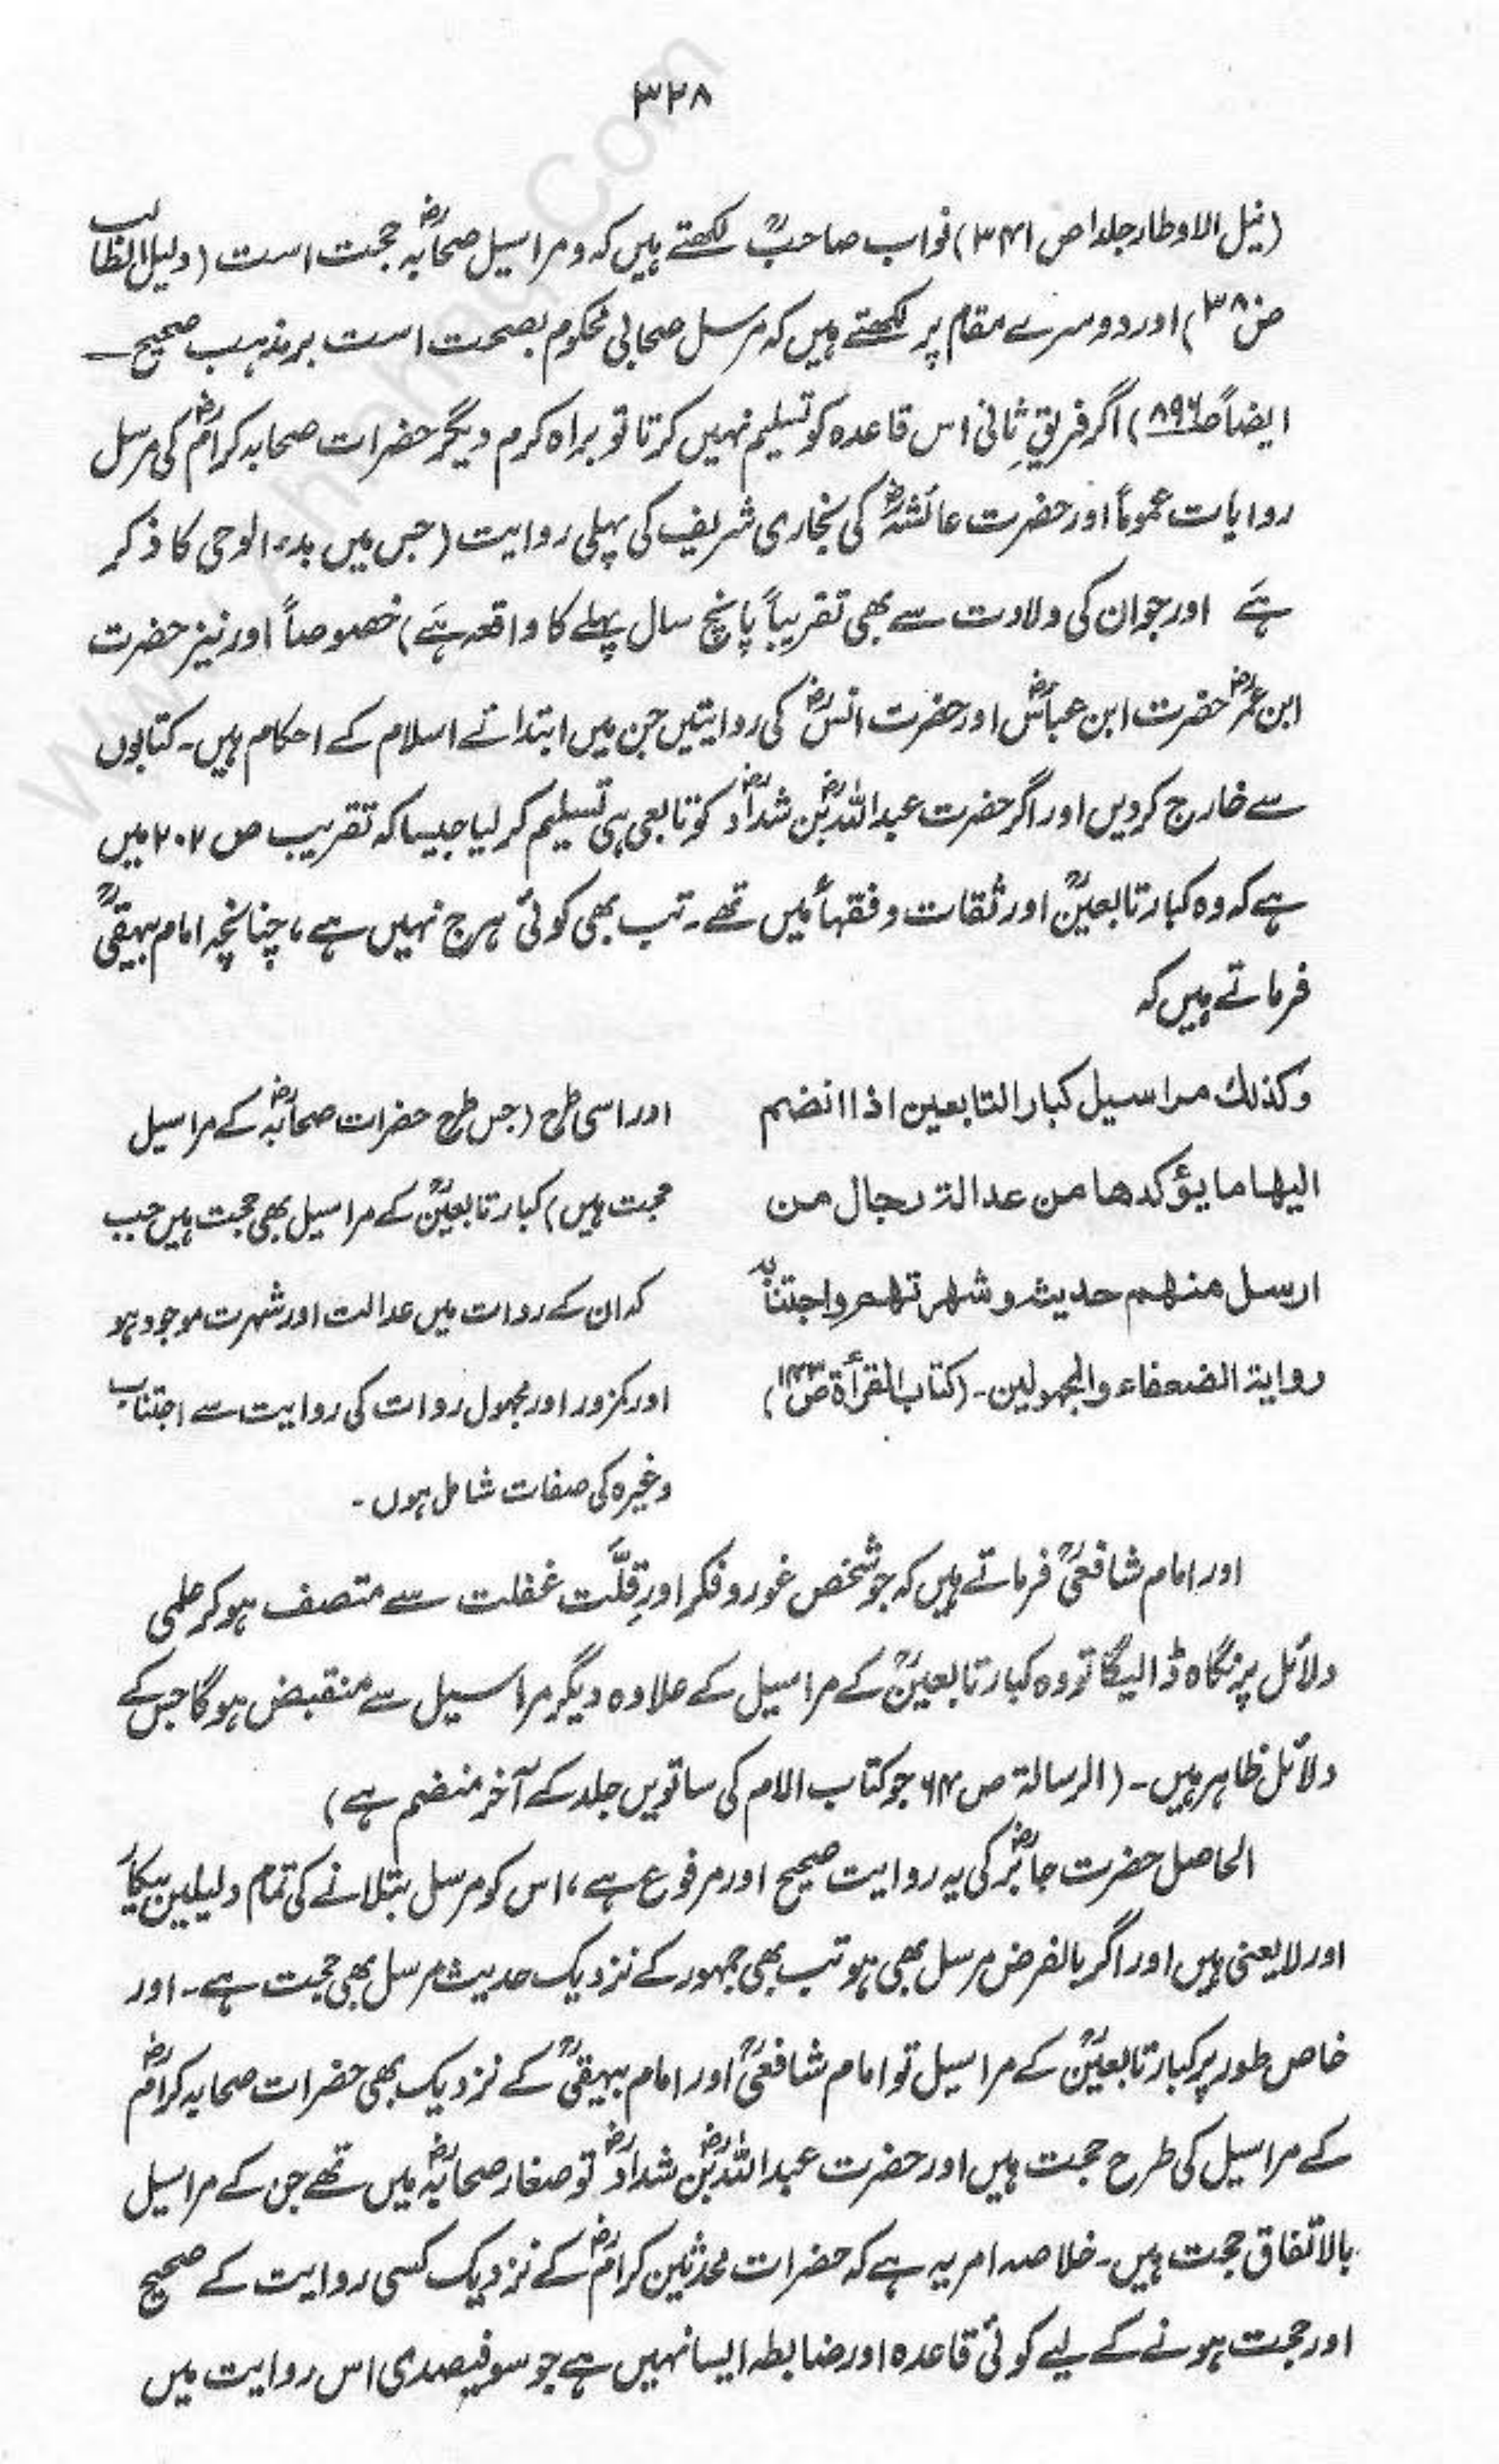 ۳۲۸
(نیل الاوطار جلد۱ ص ۳۴۱) نواب صاحبؒ لکھتے ہیں کہ و مراسیل صحابہؓ حجت است (دلیل الطالب
ص۳۸۰) اور دوسرے مقام پر لکھتے ہیں کہ مرسل صحابی محکوم بصحت است بر مذہب صحیح ـــ
ایضاً ص۸۹۶) اگر فریقِ ثانی اس قاعدہ کو تسلیم نہیں کرتا تو براہ کرم دیگر حضرات صحابہ کرامؓ کی مرسل
روایات عموماً اور حضرت عائشہؓ کی بخاری شریف کی پہلی روایت (جس میں بدء الوحی کا ذکر
ہے اور جو ان کی ولادت سے بھی تقریباً پانچ سال پہلے کا واقعہ ہے) خصوصاً اور نیز حضرت
ابن عمرؓ حضرت ابن عباسؓ اور حضرت انسؓ کی روایتیں جن میں ابتدائے اسلام کے احکام ہیں۔ کتابوں
سے خارج کردیں اور اگر حضرت عبداللہؓ بن شدادؓ کو تابعی ہی تسلیم کر لیا جیسا کہ تقریب ص ۲۰۲ میں
ہے کہ وہ کبار تابعینؒ اور ثقات و فقہاءؒ میں تھے۔ تب بھی کوئی ہرج نہیں ہے، چنانچہ امام بیہقیؒ
فرماتے ہیں کہ
وكذلك مراسيل كبار التابعين اذا انضم
اليها ما يؤكدها من عدالة رجال من
ارسل منهم حديث وشهرتهم واجتنابه
رواية الضعفاء والمجهولين۔ (کتاب القرأة ص۱۴۳)
اور اسی طرح (جس طرح حضرات صحابہؓ کے مراسیل
حجت ہیں) کبار تابعینؒ کے مراسیل بھی حجت ہیں جب
کہ ان کے روات میں عدالت اور شہرت موجود ہو
اور کمزور اور مجہول روات کی روایت سے اجتناب
وغیرہ کی صفات شامل ہوں۔
اور امام شافعیؒ فرماتے ہیں کہ جو شخص غور و فکر اور قِلَّت غفلت سے متصف ہو کر علمی
دلائل پر نگاہ ڈالیگا تو وہ کبار تابعینؒ کے مراسیل کے علاوہ دیگر مراسیل سے منقبض ہوگا جس کے
دلائل ظاہر ہیں۔ (الرسالۃ ص ۶۴ جو کتاب الام کی ساتویں جلد کے آخر منضم ہے)
الحاصل حضرت جابرؓ کی یہ روایت صحیح اور مرفوع ہے، اس کو مرسل بتلانے کی تمام دلیلیں بیکار
اور لا یعنی ہیں اور اگر بالفرض مرسل بھی ہو تب بھی جمہور کے نزدیک حدیث مرسل بھی حجت ہے۔ اور
خاص طور پر کبار تابعینؒ کے مراسیل تو امام شافعیؒ اور امام بیہقیؒ کے نزدیک بھی حضرات صحابہ کرامؓ
کے مراسیل کی طرح حجت ہیں اور حضرت عبداللہؓ بن شدادؓ تو صغار صحابہؓ میں تھے جن کے مراسیل
بالاتفاق حجت ہیں۔ خلاصہ امر یہ ہے کہ حضرات محدثین کرامؒ کے نزدیک کسی روایت کے صحیح
اور حجت ہونے کے لیے کوئی قاعدہ اور ضابطہ ایسا نہیں ہے جو سو فیصدی اس روایت میں